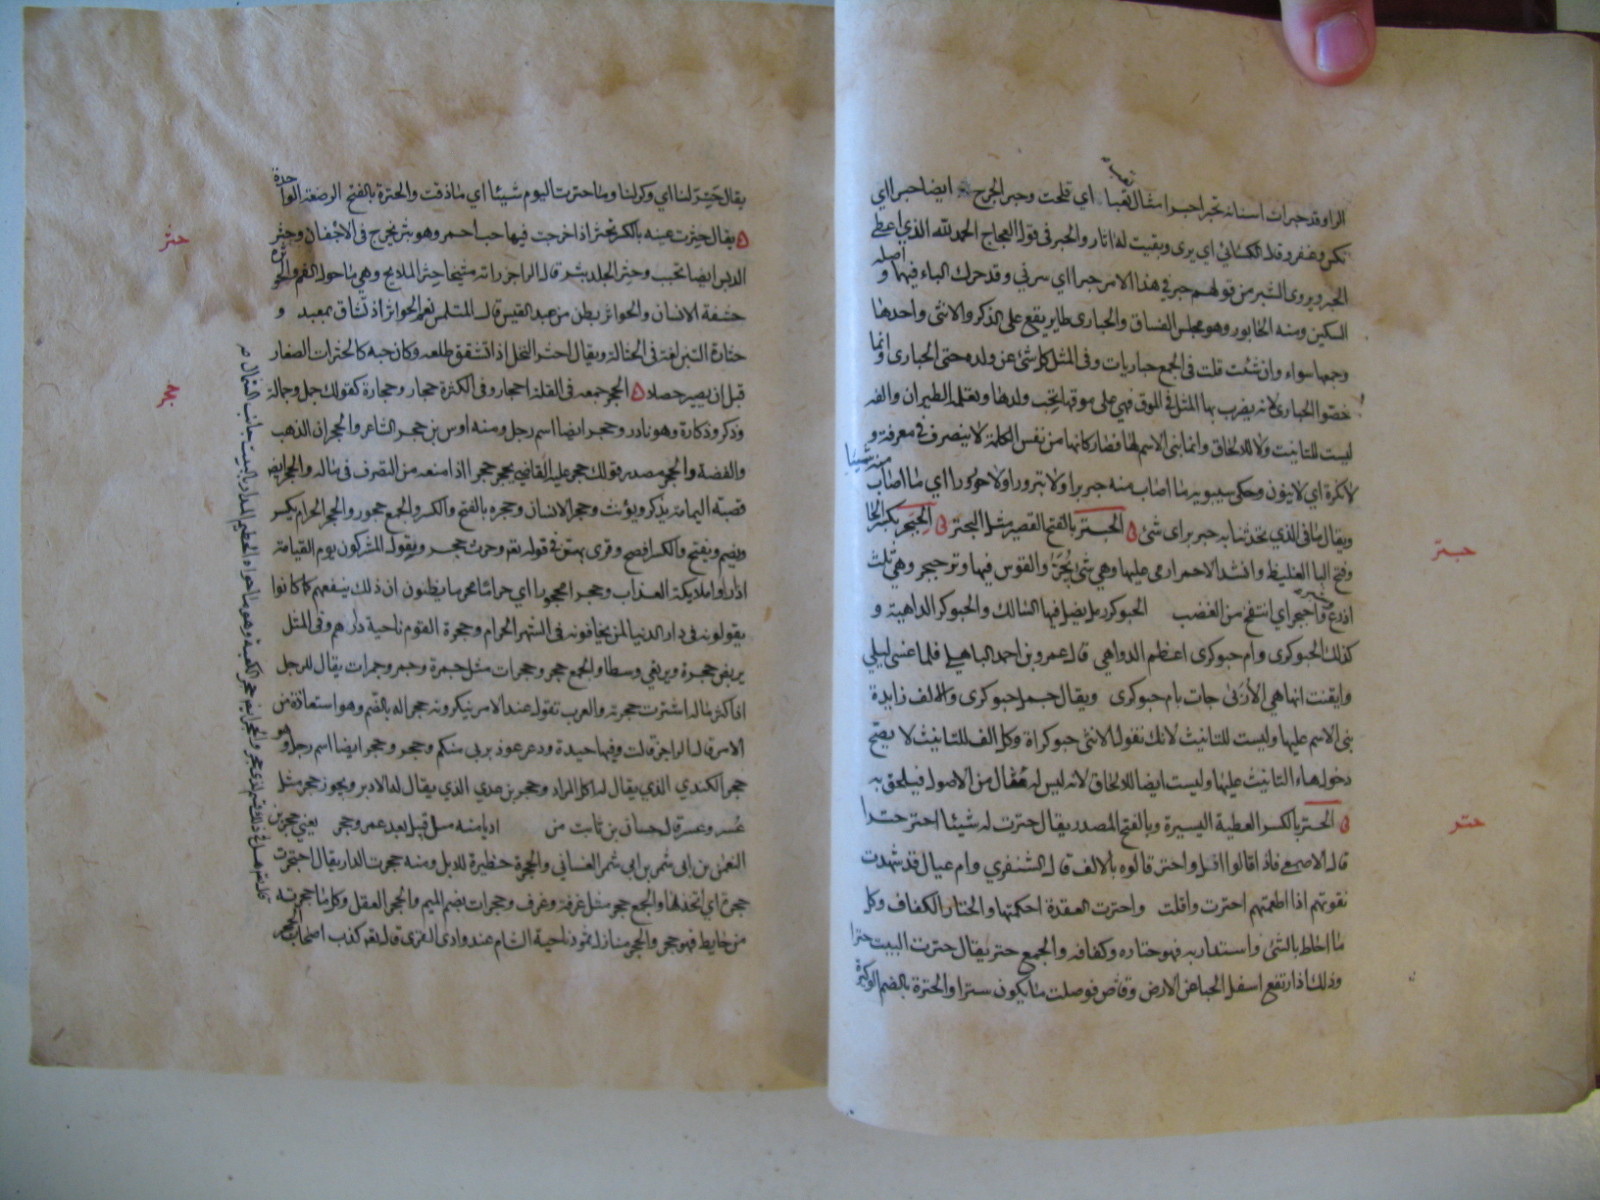 الراء وقد حبرت اسنانه تحبر حبرا مثال تعب تعبا اي قلحت وحبر الجرح ايضا حبرا اي
نكس وغفر وقال الكسائي اي برى وبقيت له اثار والحبر في قول العجاج الحمد لله الذي اعطى
الحبر ويروى الشبر من قولهم حبرني هذا الامر حبرا اي سرني وقد حرك الباء فيهما و اصله
التسكين ومنه الحابور وهو مجلس الفساق والحبارى طاير يقع على الذكر والانثى واحدها
وجمعها سواء وان شئت قلت في الجمع حباريات وفي المثل كل شئ عن ولده حتى الحبارى وانما
خصوا الحبارى لانه يضرب بها المثل في الموق فهي على موقها تحب ولدها وتعلمه الطيران والفه
ليست للتانيث ولا للالحاق وانما بني الاسم لها فصار كانها من نفس الكلمة لا ينصرف في معرفة و
لا نكرة اي لا ينون وحكى سيبويه ما اصاب منه حبربرا ولا تبربرا ولا حورورا اي ما اصاب منه شيئا
ويقال ما في الذي تحدثنا به حبربر اي شئ الحبتر بالفتح القصير مثل البحتر الحبجر بكسر الحا
وفتح البا الغليظ وانشد الاحمر ارمي عليها وهي شئ بجر والقوس فيها وتر حبجر وهي ثلث
اذرع وشبر واحبجر اي انتفخ من الغضب الحبوكر رمل يضل فيها السالك والحبوكر الداهية و
كذلك الحبوكرى وام حبوكرى اعظم الدواهي قال عمرو بن احمر الباهلي فلما غسى ليلي
وايقنت انها هي الأربى جات بام حبوكرى ويقال جمل حبوكرى والالف زايدة
بنى الاسم عليها وليست للتانيث لانك تقول الانثى حبوكراة وكل الف للتانيث لا يصح
دخول هاء التانيث عليها وليست ايضا للالحاق لانه ليس له مثال من الاصول فيلحق به
الحتر بالكسر العطية اليسيرة وبالفتح المصدر يقال حترت له شيئا احتر حترا
قال الاصمعي فاذا قالوا اقل واحتر قالوه بالالف قال الشنفري وام عيال قد شهدت
تقوتهم اذا اطعمتهم احترت واقلت واحترت العقدة احكمتها والحتار الكفاف وكل
ما احاط بالشئ واستدار به فهو حتاره وكفافه والجمع حتر يقال حترت البيت حترا
وذلك اذا ارتفع اسفل الخبا عن الارض وقلص فوصلت ما يكون سترا والحترة بالضم الوكيرة
حبتر
حتر
يقال حتر لنا اي وكر لنا وما حترت اليوم شيئا اي ما ذقت والحترة بالفتح الرضعة الواحدة
يقال حثرت عينه بالكسر تحثر اذا خرجت فيها حب احمر وهو بثر يخرج في الاجفان وحثر
الدبس ايضا تحبب وحثر الجلد بثر قال الراجز راته شيخا حثر الملامج وهي ما حول الفم والحوثرة
حشفة الانسان والحواثر بطن من عبد القيس قال المتلمس نعم الحواثر اذ تساق بمعبد و
حثارة التبن لغة في الحثالة ويقال احثر النخل اذا تشقق طلعه وكان حبه كالحثرات الصغار
قبل ان يصير حصلا الحجر جمعه في القلة احجار وفي الكثرة حجار وحجارة كقولك جمل وجمالة
وذكر وذكارة وهو نادر وحجر ايضا اسم رجل ومنه اوس بن حجر الشاعر والحجران الذهب
والفضة والحجر مصدر قولك حجر عليه القاضي يحجر حجرا اذا منعه من التصرف في ماله والحجر ايضا
قصبة اليمامة يذكر ويؤنث وحجر الانسان وحجره بالفتح والكسر والجمع حجور والحجر الحرام يكسر
ويضم ويفتح والكسر افصح وقرى بهن في قوله تعالى وحرث حجر ويقول المشركون يوم القيامة
اذا راوا ملايكة العذاب وحجرا محجورا اي حراما محرما يظنون ان ذلك ينفعهم كما كانوا
يقولونه في دار الدنيا لمن يخافونه في الشهر الحرام وحجرة القوم ناحية دارهم وفي المثل
يربض حجرة ويرتعي وسطا والجمع حجر وحجرات مثل جمرة وجمر وجمرات يقال للرجل
اذا كثر ماله انتشرت حجرته والعرب تقول عند الامر ينكرونه حجرا له بالضم وهو استعاذة من
الامر قال الراجز قالت وفيها حيدة وذعر عوذ بربي منكم وحجر وحجر ايضا اسم رجل وهو
حجر الكندي الذي يقال له اكل المرار وحجر بن عدي الذي يقال له الادبر ويجوز حجر مثل
عسر وعسرة قال حسان بن ثابت من اذا منه مثل قبل بعد عمرو وحجر يعني حجر بن
النعمن بن ابي شمر بن ابي شمر الغساني والحجرة حظيرة للابل ومنه حجرت الدار يقال احتجرت
حجرة اي اتخذتها والجمع حجر مثل غرفة وغرف وحجرات بضم الجيم والحجر العقل وكل ما حجرته
من حايط فهو حجر والحجر منازل ثمود ناحية الشام عند وادي القرى قال الله تعالى كذب اصحاب الحجر
حثر
حجر